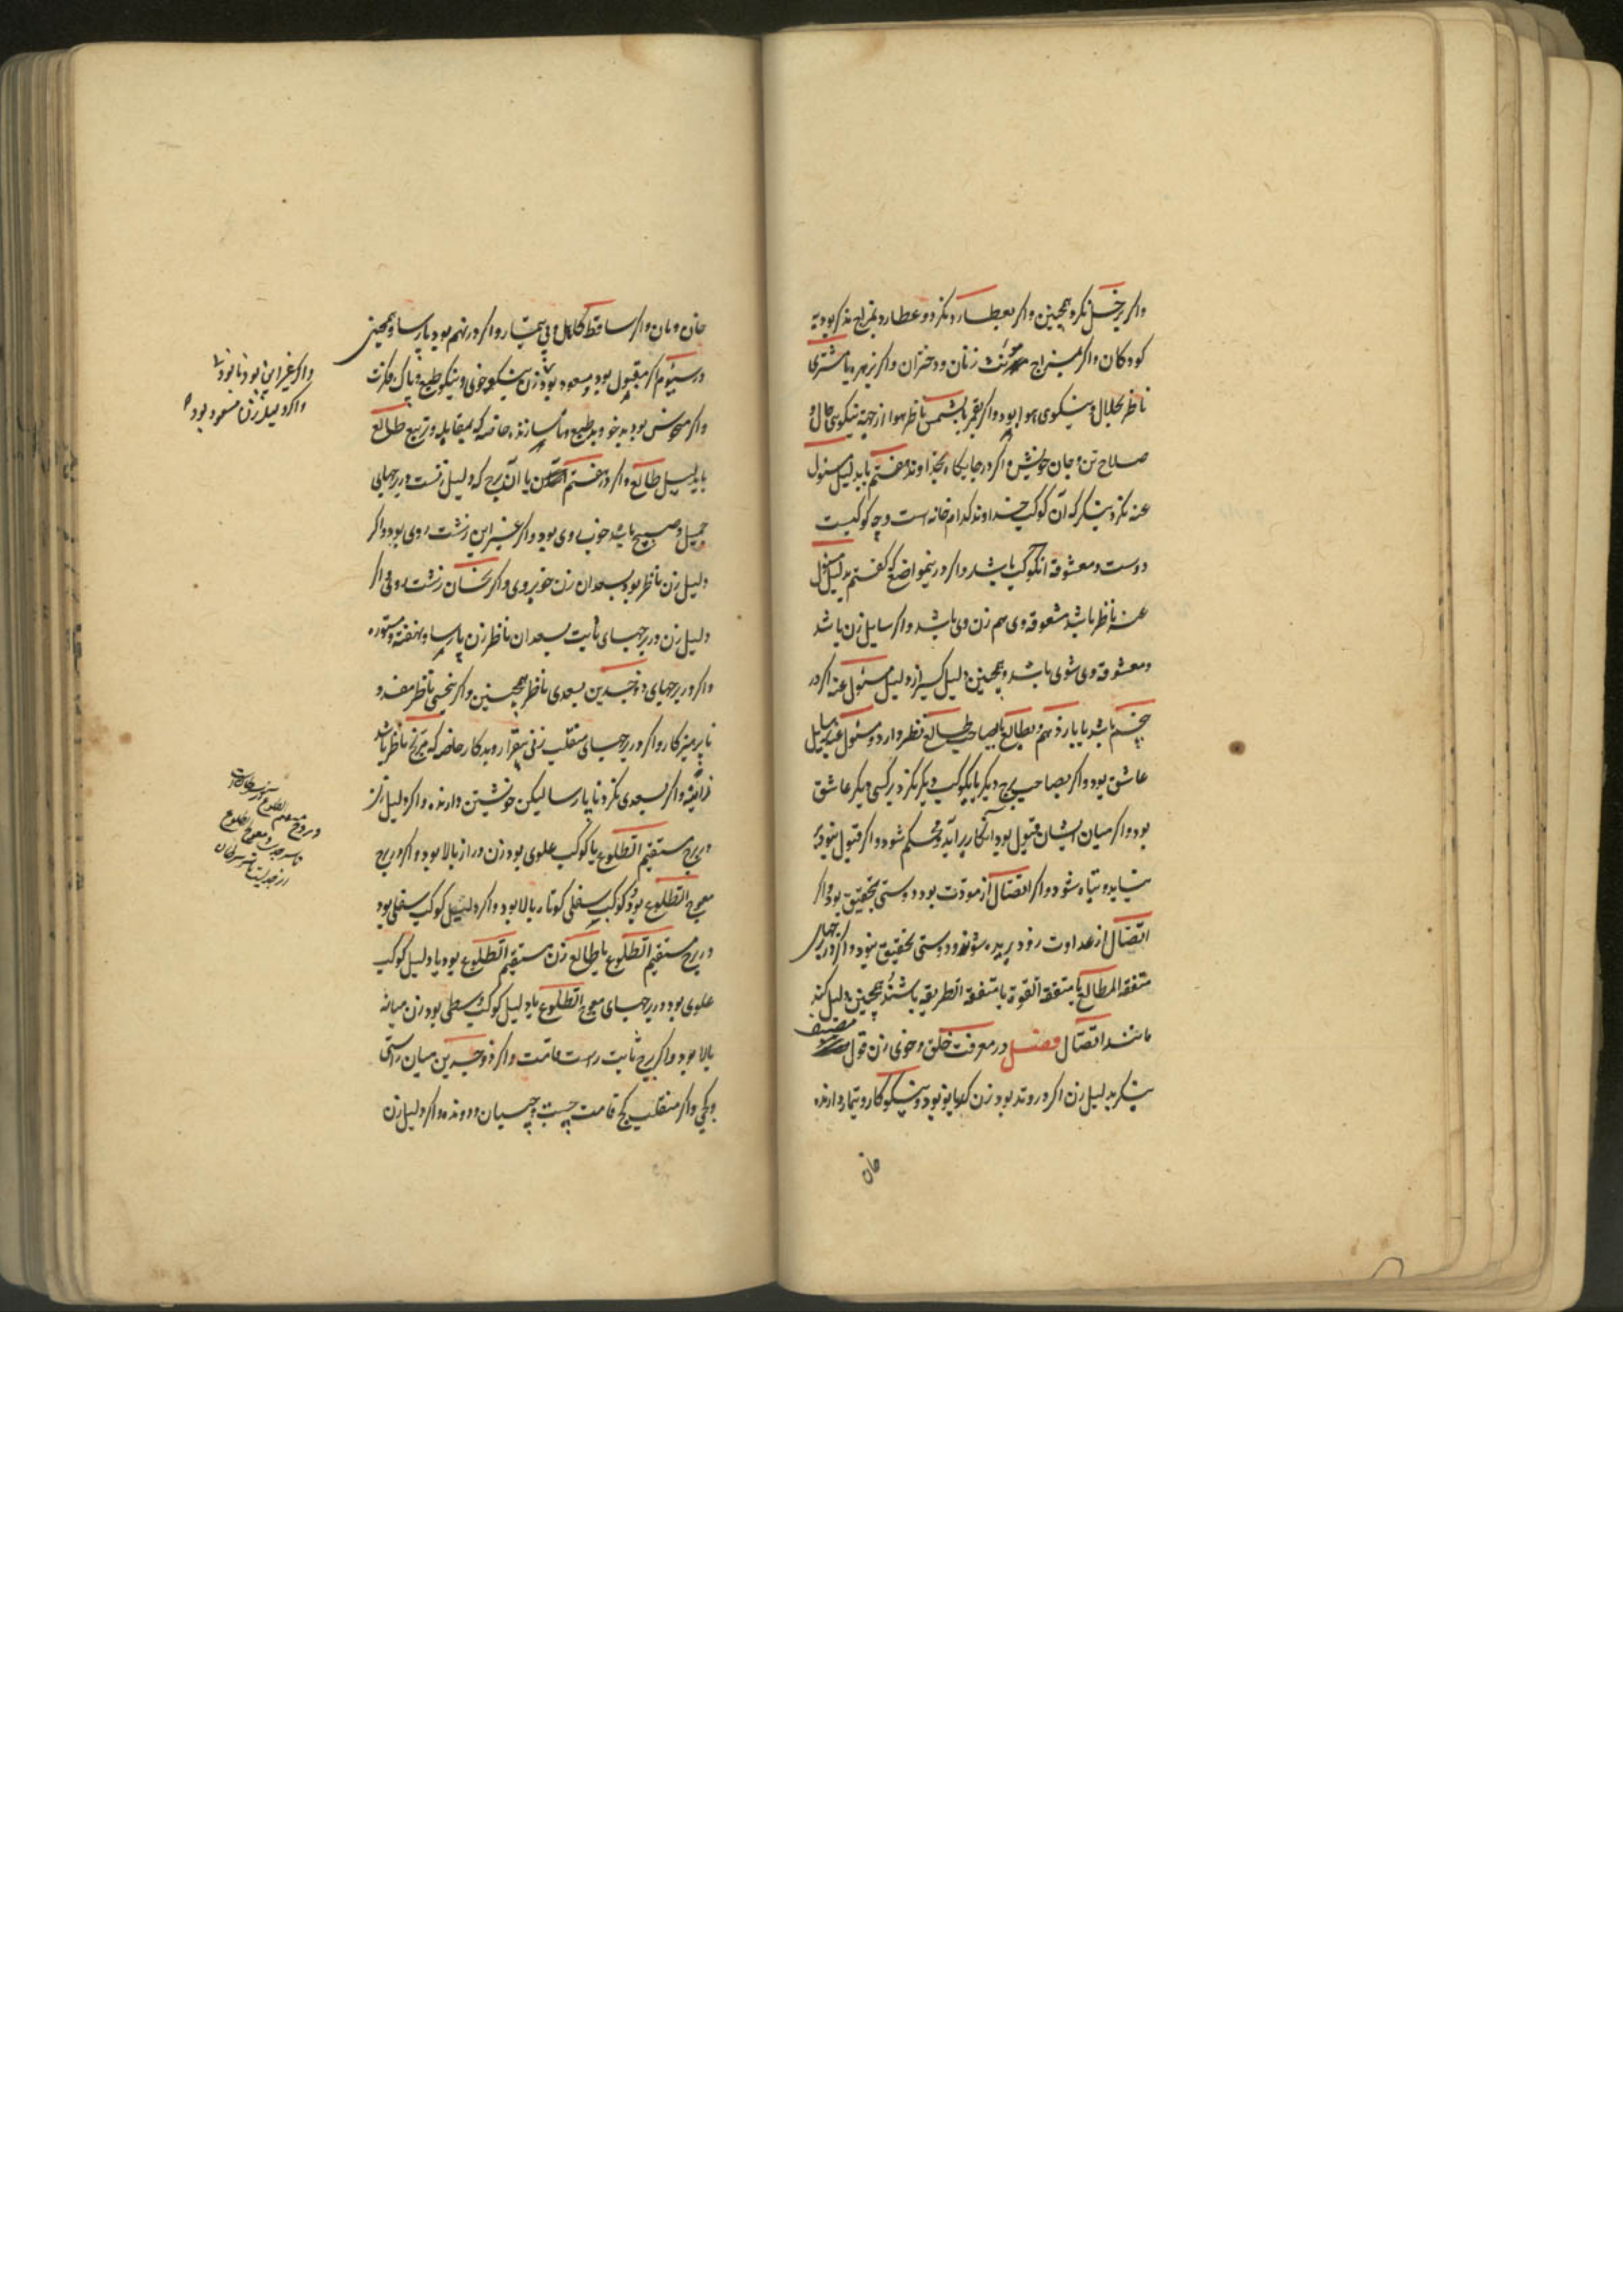 واکر بزحل نکرد همچنین واکر بعطارد نکرد و عطارد بمزاج مذکر بود به
کودکان واکر بمزاج مؤنث زنان و دختران واکر بزهره یا مشتری
ناظر بحلال و نیکوی هوا بود واکر بقمر یا بشمس ناظر هوا از جهة نیکوی حال و
صلاح تن و جان خویش واکر در جایکاه بخداوند هفتم یا بدلیل مسئول
عنه نکرد بنکر که آن کوکب خداوند کدام خانه است و چه کوکبست
دوست و معشوقه آنکوکب باشد واکر درینمواضع که کفتم بدلیل مسئول
عنه ناظر باشد معشوقه وی هم زن وی باشد واکر سایل زن باشد
ومعشوقه وی شوی باشد و همچنین دلیل از دلیل مسئول عنه اکر در
پنجم باشد یا یازدهم و بطالع یا بصاحب طالع نظر دارد و مسئول عنه بسایل
عاشق بود واکر بصاحب برج دیکر یا بکوکب دیکر نکرد بر کسی دیکر عاشق
بود واکر میان ایشان قبول بود آنکار برآید و محکم شود واکر قبول نبود به
نیاید و تباه شود واکر اتصال از مودت بود دوستی بتحقیق بود واکر
اتصال از عداوت زود بریده شوند و دوستی بتحقیق نبود واکر در برجهای
متفقة المطالع یا متفقة القوة یا متفقة الطریقه باشند همچنین دلیل کند
مانند اتصال فصل در معرفت خلق و خوی زن قول مصنف
بنکر بدلیل زن اکر در وتد بود زن کدبانو بود و نیکوکار و تیماردارنده
خان
خان و مان واکر ساقط کاهل و بی تیمار واکر در نهم بود پارسا و همچنین
در سیوم اکر مقبول بود و مسعود بود زن نیکو خوی و نیکو طبع و پاک فکرت
واکر منحوس بود بدخو و بد طبع و ناسازنده خاصه که بمقابله و تربیع طالع
یا بدلیل طالع واکر در هفتم یا آن برج که دلیل زنست در برجهای
جمیل و صبیح باشد خوب روی بود واکر غیر این زشت روی بود واکر
دلیل زن ناظر بود بسعدان زن خوبروی واکر بنحسان زشت روی اکر
دلیل زن در برجهای ثابت بسعدان ناظر زن پارسا و نهفته و مستوره
واکر در برجهای ذوجسدین بسعدی ناظر همچنین واکر بنحسی ناظر مفسد و
ناپرهیزکار واکر در برجهای منقلب زنی بیقرار و بدکار خاصه که مریخ ناظر باشد
واکر بسعدی نکرد ناپارسا لیکن خویشتن دارنده واکر دلیل زن
در برج مستقیم الطلوع یا کوکب علوی بود زن دراز بالا بود واکر در برج
معوج الطلوع بود و کوکب سفلی کوتاه بالا بود واکر دلیل کوکب سفلی بود
در برج مستقیم الطلوع یا طالع زن مستقیم الطلوع بود یا دلیل کوکب
علوی بود در برجهای معوج الطلوع یا دلیل کوکب وسطی بود زن میانه
بالا بود واکر برج ثابت راست قامت واکر ذوجسدین میان راستی
و کجی واکر منقلب کج قامت چست و چسبان و دونده واکر دلیل زن
واکر غیر این بود نابود
واکر دلیل زن مسعود بود